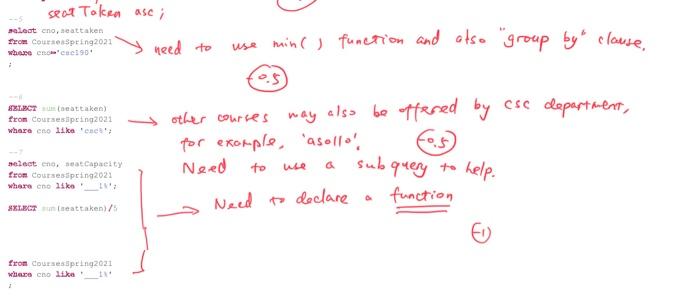 -5
seatTaken asc;
--5
select cno,seattaken
from CoursesSpring2021
where cno='csc190'
;
need to use min( ) function and also "group by" clause.
-0.5
--6
SELECT sum(seattaken)
from CoursesSpring2021
where cno like 'csc%';
other courses may also be offered by csc department,
for example, 'aso110'.
-0.5
Need to use a subquery to help.
--7
select cno, seatCapacity
from CoursesSpring2021
where cno like '___1%';
SELECT sum(seattaken)/5
from CoursesSpring2021
where cno like '___1%'
;
Need to declare a function
-1